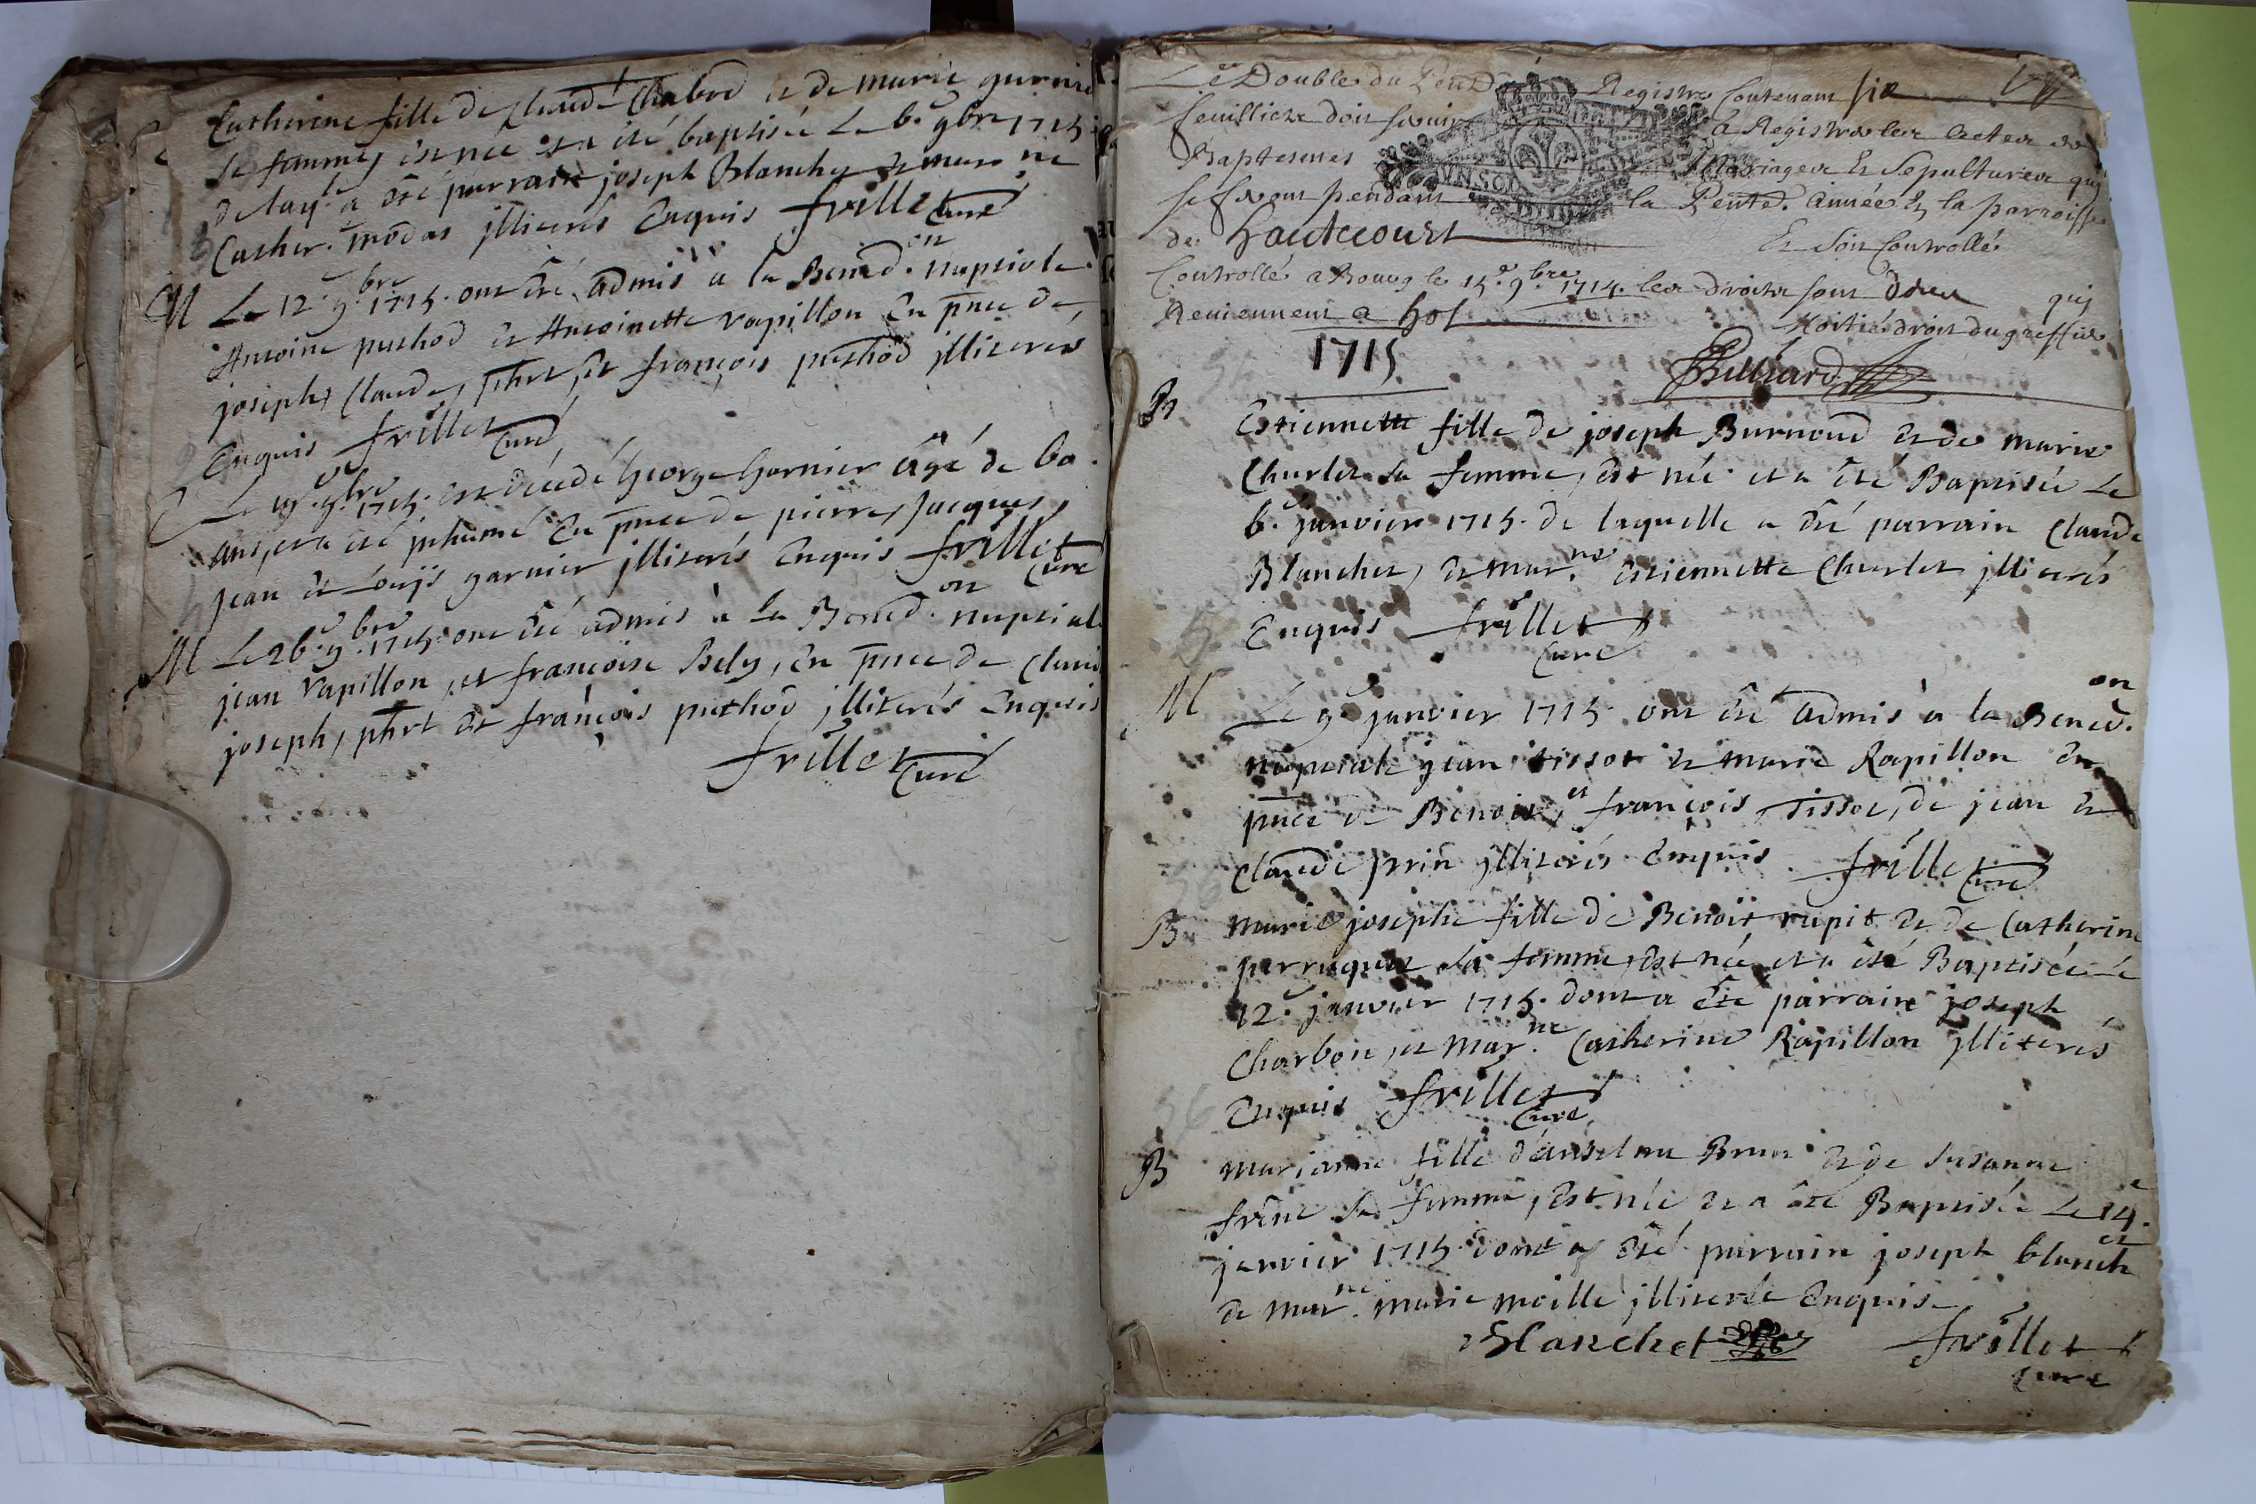 Catherine fille de Claude Chabod et de marie
sa femme, est née et a été baptisée Le 6.e 9bre 1715
delaq.le a été parrain joseph Blanchet et mar.ne
Cather. illiterés Enquis frillet Curé
M Le 12.e 9.bre 1715. ont été admis à la Bened.on nuptiale
Antoine puthod et Antoinette rapillon En pnce de
joseph, Claude, phrt et françois puthod illiterés
Enquis frillet Curé
Le 9.bre 1715. est décédé George Garnier âgé de 60
ans, et a été inhumé En pnce de pierre, Jacques,
jean et Louÿs garnier illiterés Enquis frillet Curé
M Le 26.e 9.bre 1715. ont été admis à la Bened.on nuptiale
jean rapillon, et françoise Bely, En pnce de Claude
joseph, phrt et françois puthod illiterés Enquis
frillet Curé
Le Double du Registre Contenant six
feuillets doit servir a Registrer les Actes de
Baptesmes Mariages Et Sepultures qui
se feront pendant la année En la parroisse
de hautecourt Et Soit Controllé
Controllé a Bourg le 15.e 9.bre 1714. les droits sont qui
Reviennent a Moitié droit du greffier
1715
Billiard
B Estiennette fille de joseph Burnoud et de marie
Churlet sa femme, est née et a été Baptisée Le
6.e janvier 1715. de laquelle a été parrain Claude
Blanchet, et mar.ne Estiennette Churlet illiterés
Enquis frillet Curé
M Le 9.e janvier 1715 ont été admis à la Bened.on
nuptiale jean tissot et marie Rapillon En
pnce de Benoit, et françois Tissot, de jean et
Claude prin illiterés Enquis. frillet Curé
B Marie josephe fille de Benoît rupit et de Catherine
perruquet sa femme, est née et a été Baptisée Le
12.e janvier 1715. dont a été parrain joseph
Charbon, et Mar.ne Catherine Rapillon illiterés
Enquis frillet Curé
B Marianne fille d'anselme Brun et de Susanne
frêne sa femme, est née et a été Baptisée Le 14.e
janvier 1715. dont a été parrain joseph blanchet
et mar.ne marie moille illiterée Enquise
Blanchet frillet
Curé